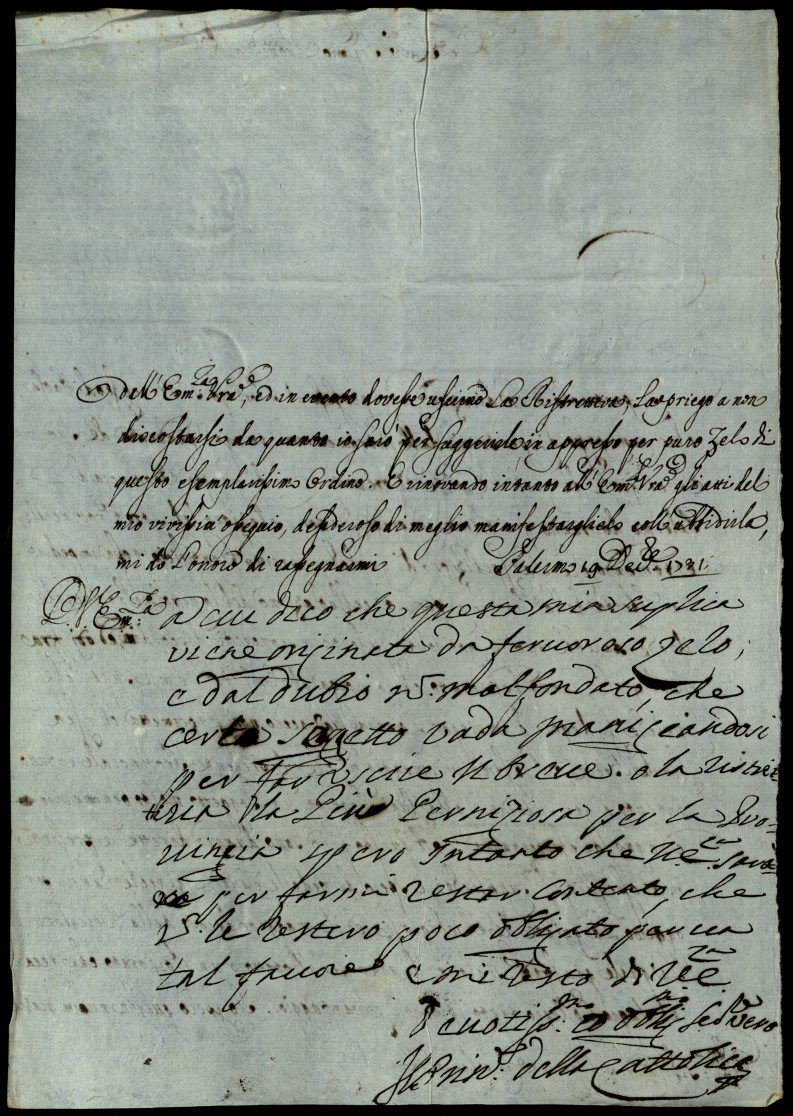 dell' Em.za Vra, ed in evento dovesse uscirne La Ristrettiva, La priego a non
discostarsi da quanto io sarò per suggerirle in appresso per puro zelo di
questo esemplarissimo Ordine. E rinovando intanto all' Em.za Vra gli atti del
mio vivissim' ossequio, desideroso di meglio manifestarglielo coll' ubbidirla,
mi do l'onore di rassegnarmi Palermo 19 Dec.bre 1721
Em.za a cui dico che questa mia suplica
viene originata da fervoroso zelo,
e dal dubio n. mal fondato, che
certo sogetto vada maneggiandosi
per far uscire il breve o la ristret-
tiva la più Perniziosa per la Pro-
vincia spero intanto che V.E.za
per farmi restar Contento, che
n. le resterò poco obligato per una
tal favore e mi resto di V.E.za
Devotiss.mo ed obblig. Serv.re vero
Il Prin.e della Cattolica